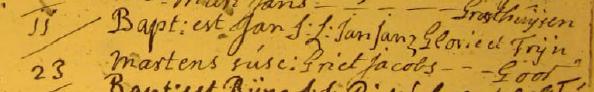 Grosthuijsen
11 Bapt: est Jan f: f: Jan Janz Glorie et Trijn
23 Martens süsc: Griet Jacobs - - Goor
Bapt: est